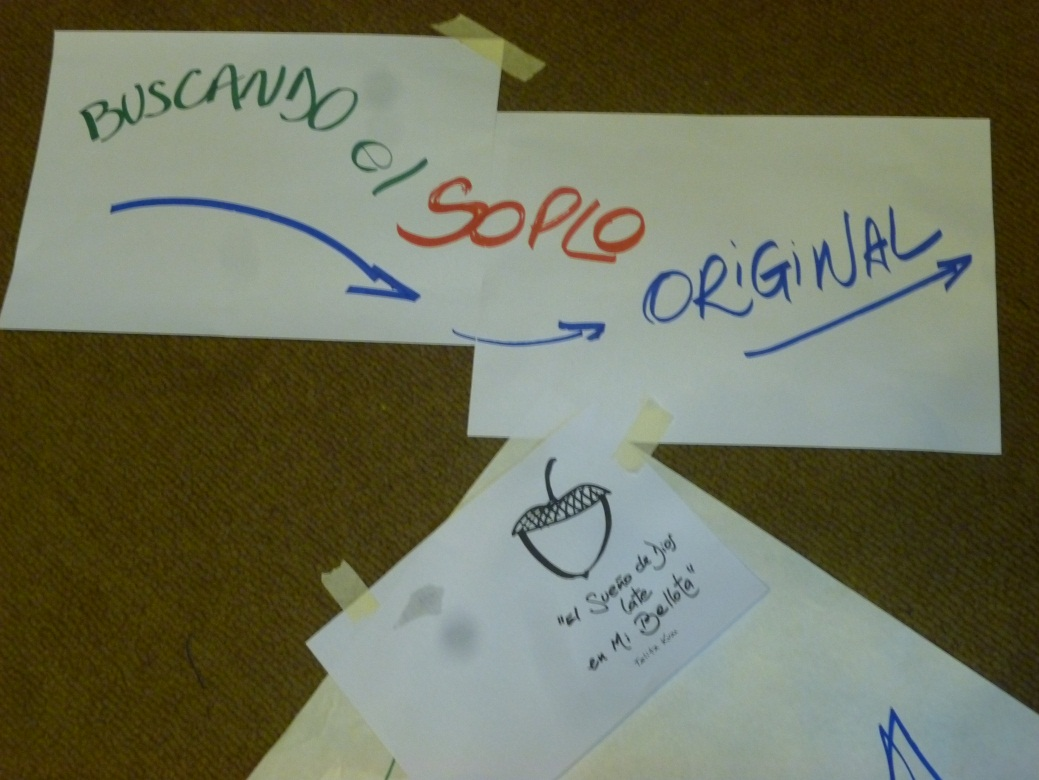 BUSCANDO el SOPLO ORiGiNAL
"El Sueño de Dios
late
en Mi Bellota"